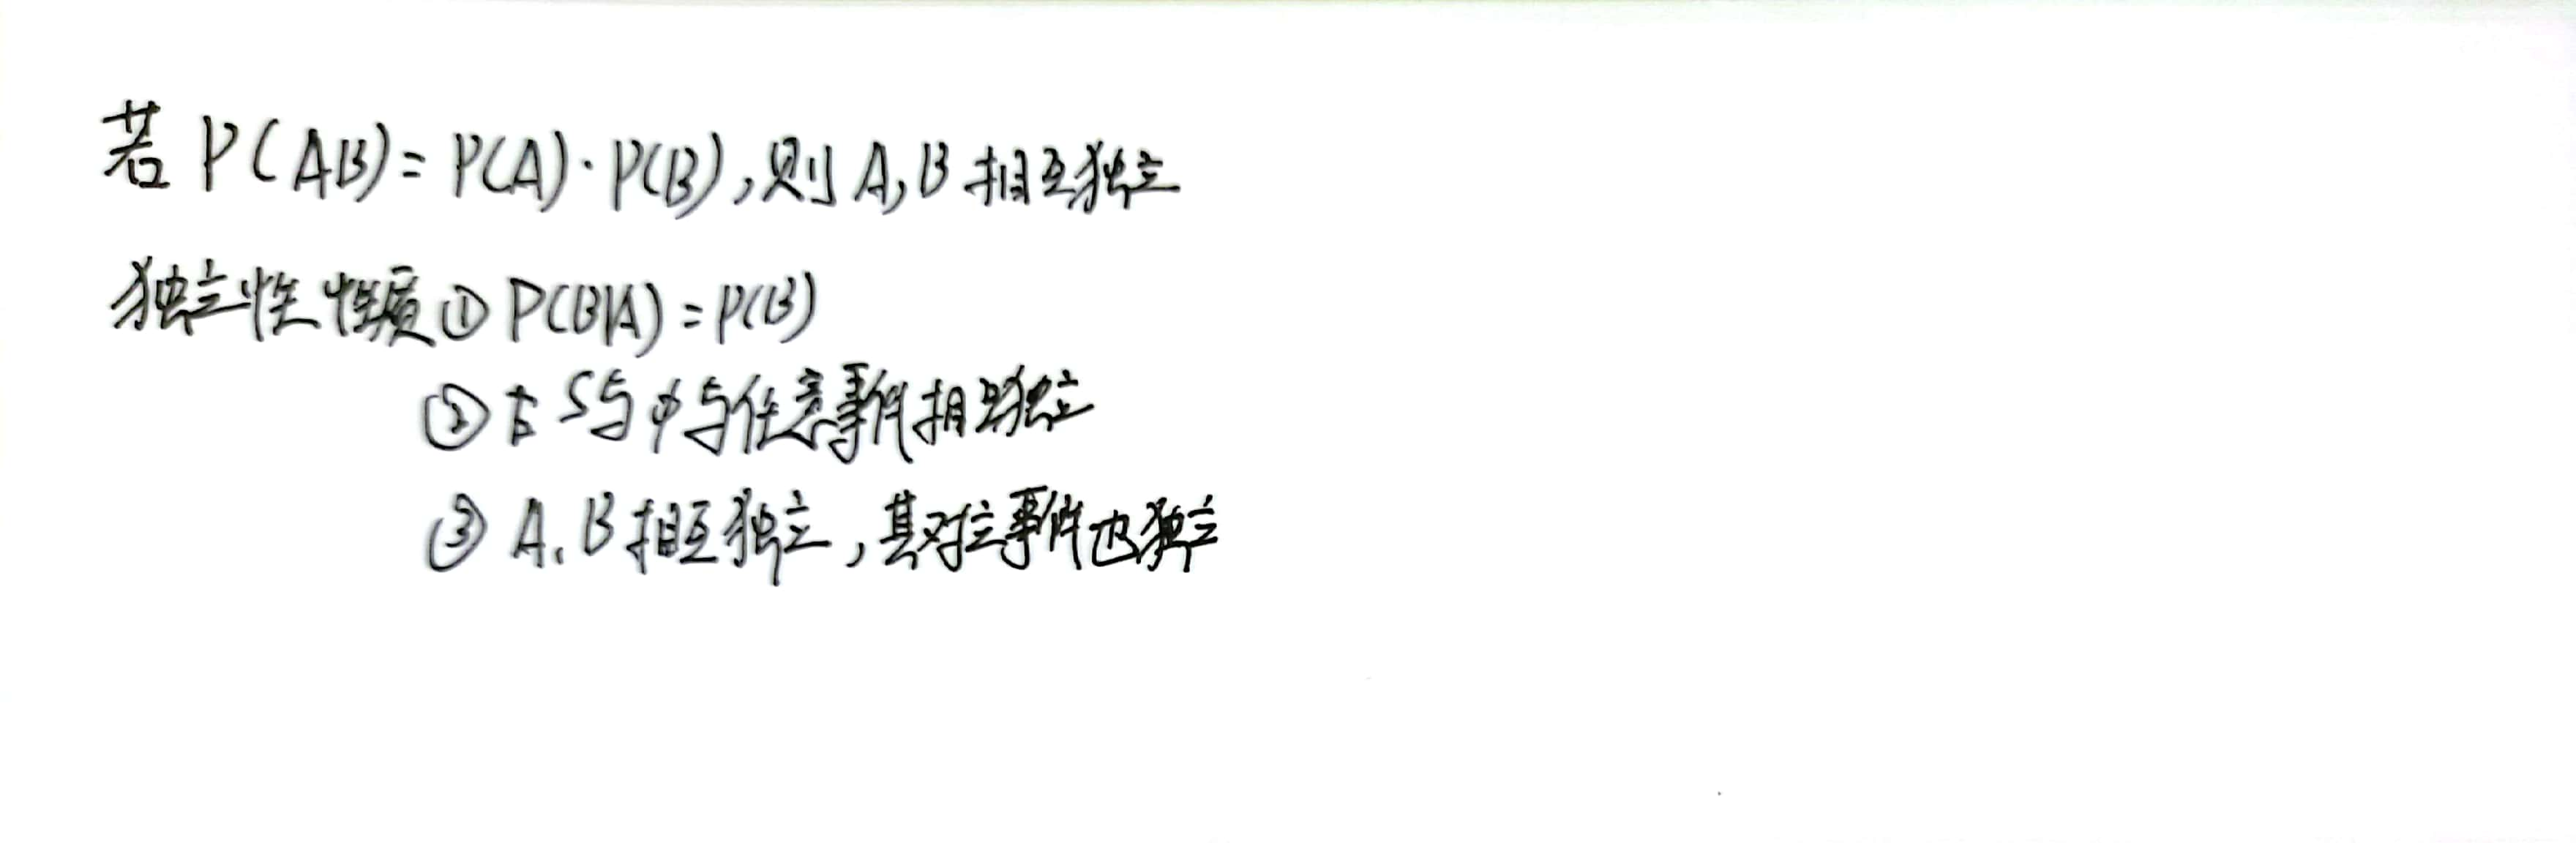 若 P(AB)=P(A)·P(B),则 A,B 相互独立
独立性 性质① P(B|A)=P(B)
② S与ϕ与任意事件相互独立
③ A、B 相互独立,其对立事件也独立